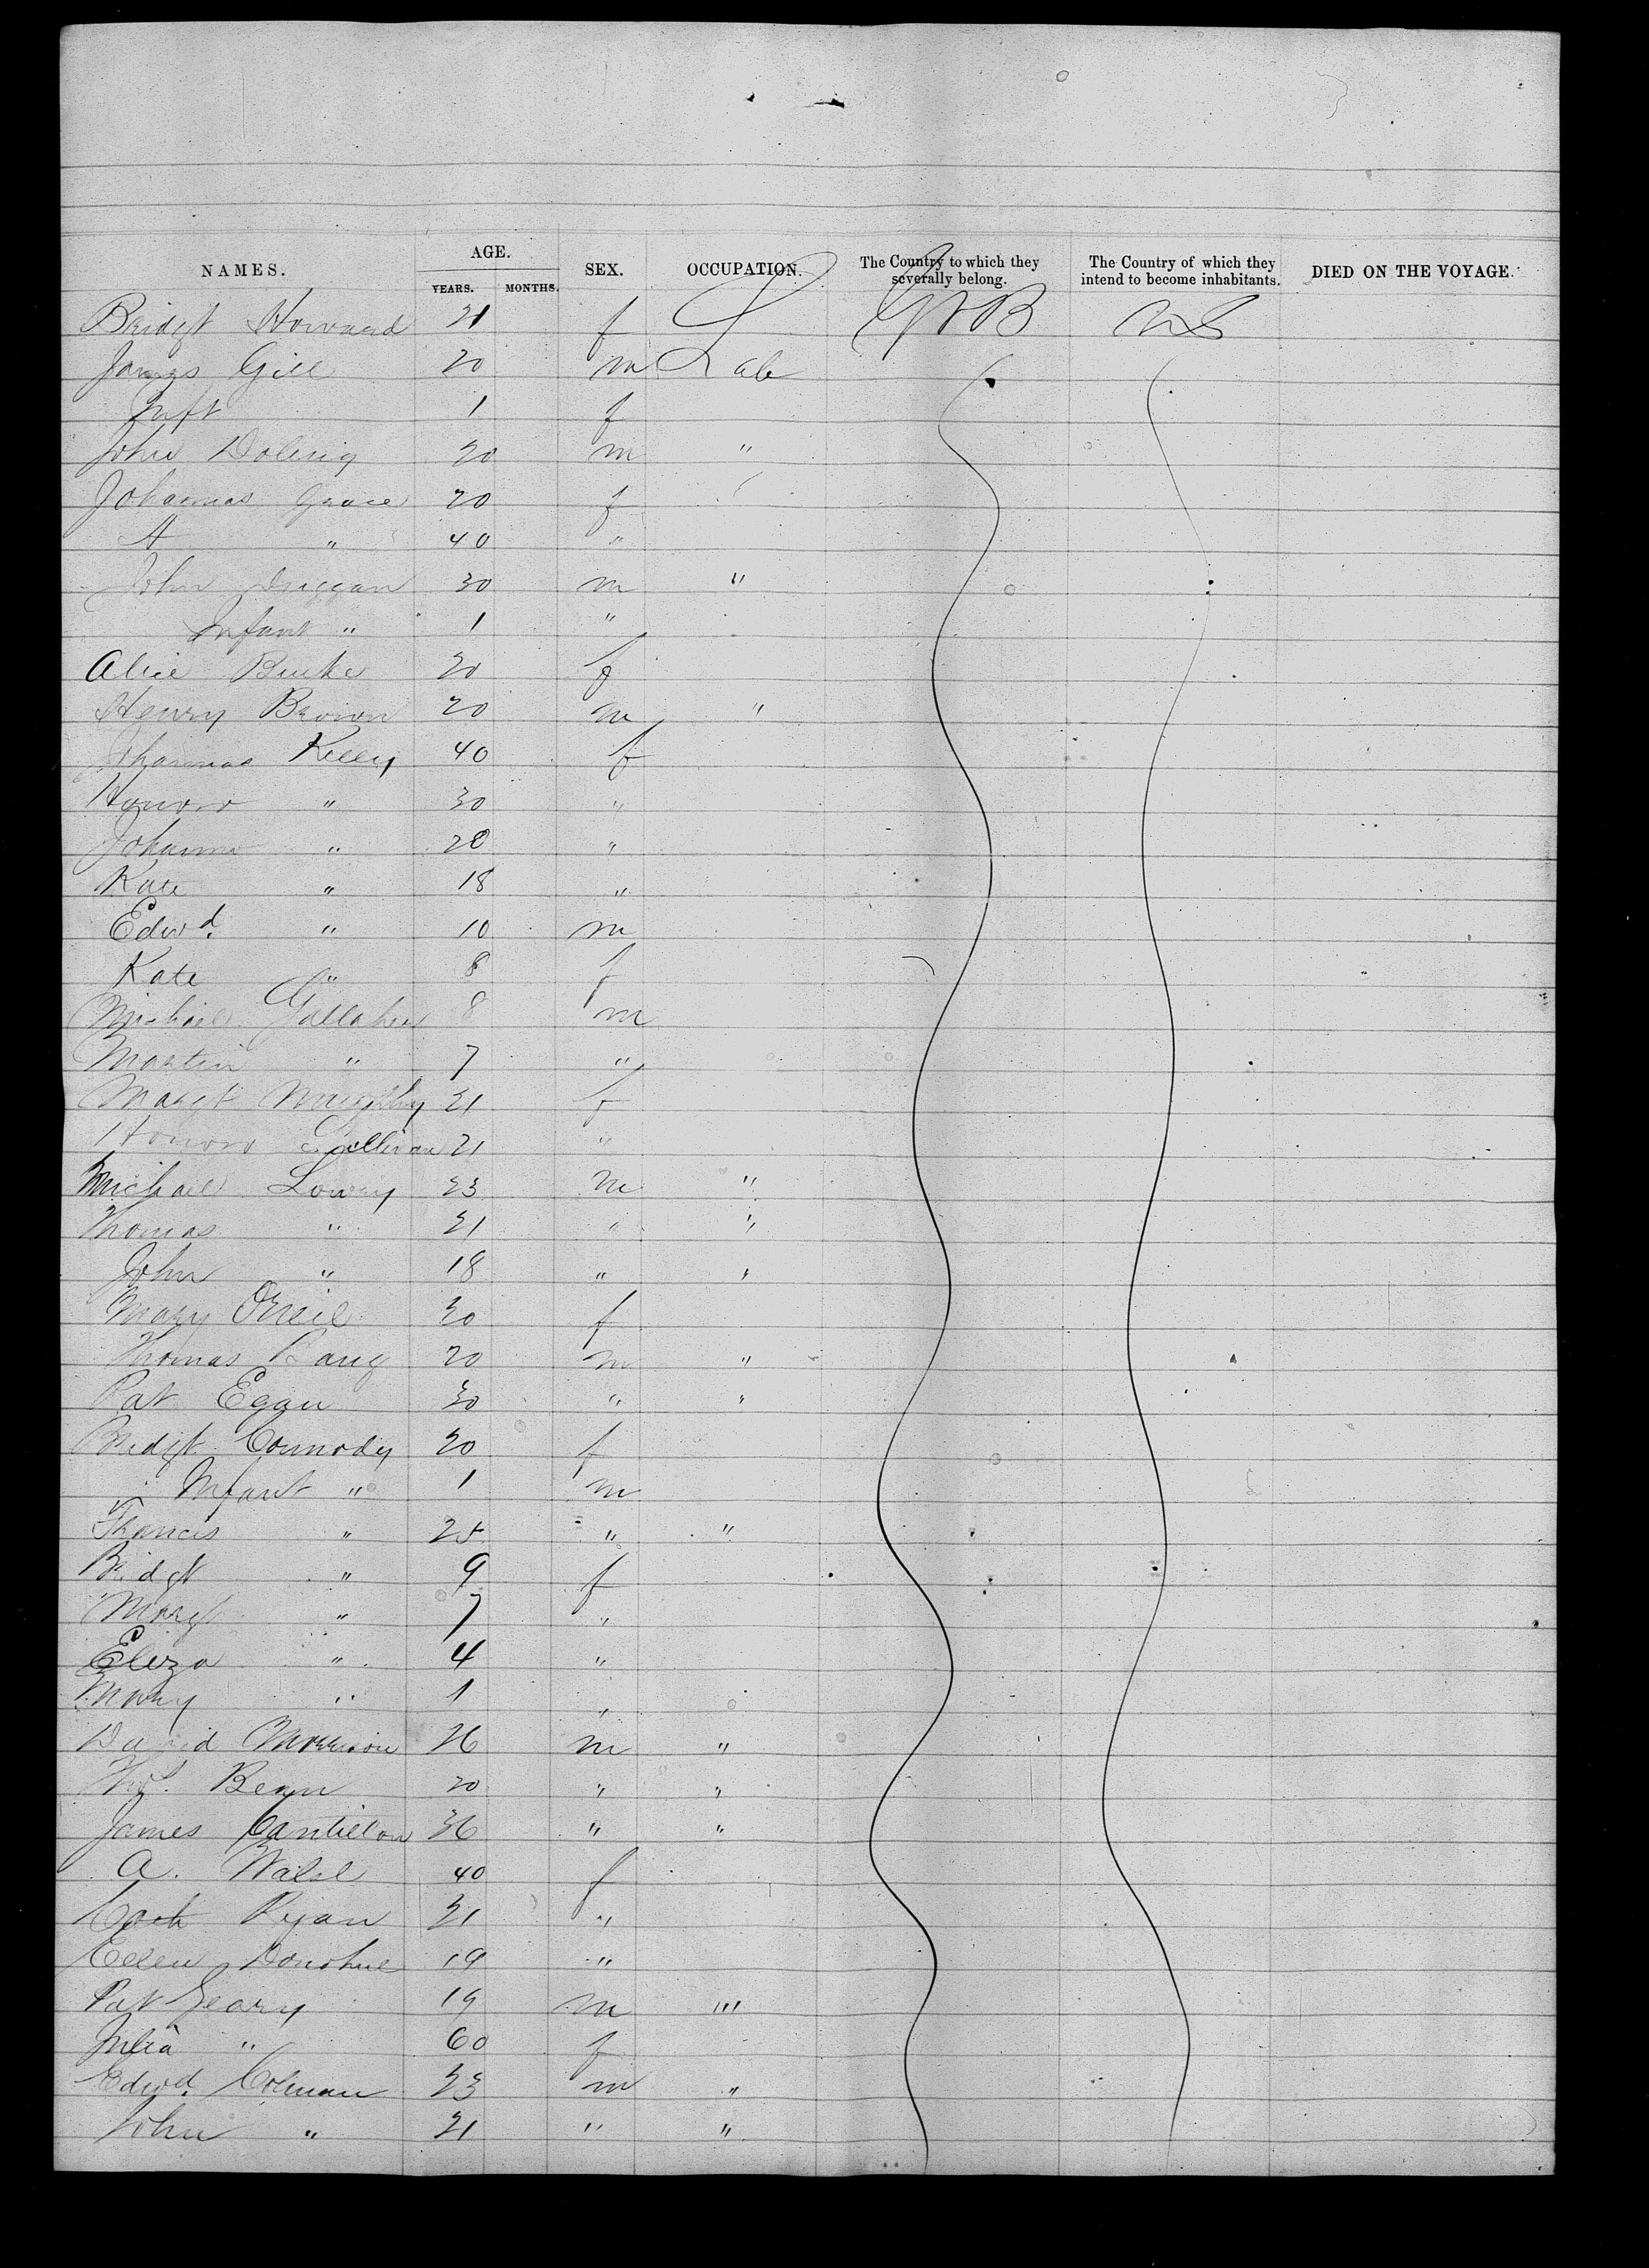 NAMES. AGE. YEARS. MONTHS. SEX. OCCUPATION. The Country to which they severally belong. The Country of which they intend to become inhabitants. DIED ON THE VOYAGE.
Bridgt Howard 21 f L GtB US
James Gill 20 m Lab
Inft 1 f
John 20 m "
Johannas Grace 20 f
A " 40 "
John Duggan 30 m "
Infant " 1 "
Alice Burke 20 f
Henry Brown 20 m "
Johannas Kelly 40 f
Honora " 30 "
Johanna " 20 "
Kate " 18 "
Edwd. " 10 m
Kate " 8 f
Michael Gallaher 8 m
Martin " 7 "
Margt Murphy 21 f
Honora Sullivan 21 "
Michael Lowry 23 m "
Thomas " 21 " "
John " 18 " "
Mary ONeil 30 f
Thomas 20 m "
Pat Egan 30 " "
Bridgt Connody 20 f
Infant " 1 m
Francis " 25 " "
Bridgt " 9 f
Margt " 7 "
Eliza " 4 "
Mary " 1 "
David Morrison 26 m "
Thos. 20 " "
James Cantillon 36 " "
A. Walsh 40 f
Cath Ryan 21 "
Ellen Donohue 19 "
Pat Geary 19 m "
Julia " 60 f
Edwd. Colman 23 m "
John " 21 " "